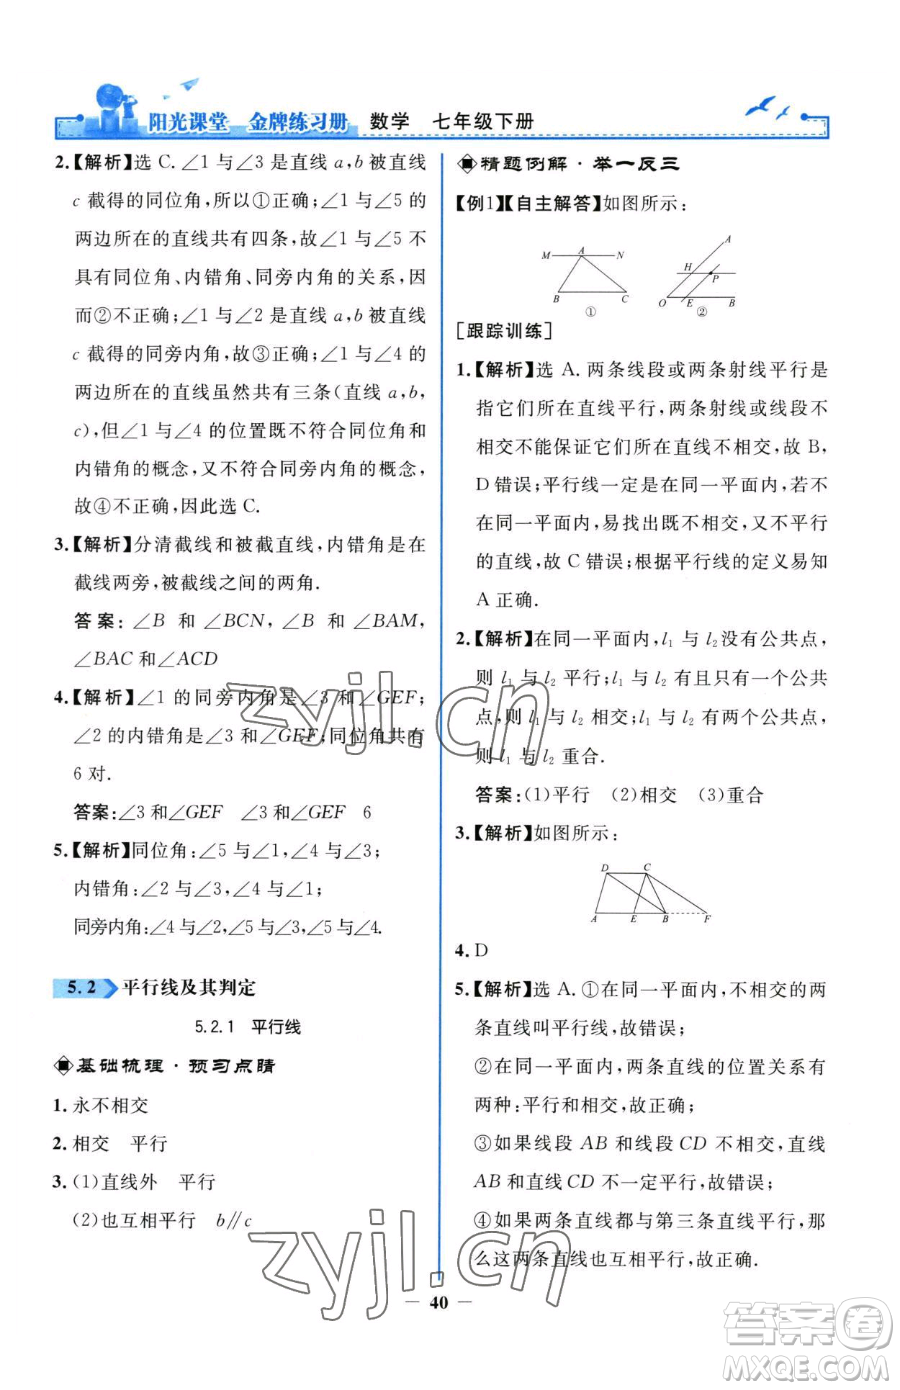 阳光课堂 金牌练习册 数学 七年级下册
2.【解析】选 C.∠1 与∠3 是直线 a,b 被直线
c 截得的同位角,所以①正确;∠1 与∠5 的
两边所在的直线共有四条,故∠1 与∠5 不
具有同位角、内错角、同旁内角的关系,因
而②不正确;∠1 与∠2 是直线 a,b 被直线
c 截得的同旁内角,故③正确;∠1 与∠4 的
两边所在的直线虽然共有三条(直线 a,b,
c),但∠1 与∠4 的位置既不符合同位角和
内错角的概念,又不符合同旁内角的概念,
故④不正确,因此选 C.
3.【解析】分清截线和被截直线,内错角是在
截线两旁,被截线之间的两角.
答案:∠B 和 ∠BCN,∠B 和 ∠BAM,
∠BAC 和∠ACD
4.【解析】∠1 的同旁内角是∠3 和∠GEF;
∠2 的内错角是∠3 和∠GEF;同位角共有
6 对.
答案:∠3 和∠GEF ∠3 和∠GEF 6
5.【解析】同位角:∠5 与∠1,∠4 与∠3;
内错角:∠2 与∠3,∠4 与∠1;
同旁内角:∠4 与∠2,∠5 与∠3,∠5 与∠4.
5.2 平行线及其判定
5.2.1 平行线
基础梳理·预习点睛
1. 永不相交
2. 相交 平行
3. (1)直线外 平行
(2)也互相平行 b∥c
精题例解·举一反三
【例1】【自主解答】如图所示:
M A N
B C
①
A
H P
O E B
②
[跟踪训练]
1.【解析】选 A. 两条线段或两条射线平行是
指它们所在直线平行,两条射线或线段不
相交不能保证它们所在直线不相交,故 B、
D 错误;平行线一定是在同一平面内,若不
在同一平面内,易找出既不相交,又不平行
的直线,故 C 错误;根据平行线的定义易知
A 正确.
2.【解析】在同一平面内,l₁ 与 l₂没有公共点,
则 l₁ 与 l₂ 平行;l₁ 与 l₂ 有且只有一个公共
点,则 l₁ 与 l₂ 相交;l₁ 与 l₂ 有两个公共点,
则 l₁ 与 l₂ 重合.
答案:(1)平行 (2)相交 (3)重合
3.【解析】如图所示:
D C
A E B F
4. D
5.【解析】选 A.①在同一平面内,不相交的两
条直线叫平行线,故错误;
②在同一平面内,两条直线的位置关系有
两种:平行和相交,故正确;
③如果线段 AB 和线段 CD 不相交,那么直线
AB 和直线 CD 不一定平行,故错误;
④如果两条直线都与第三条直线平行,那
么这两条直线也互相平行,故正确.
40
zyjl.cn
zyjl.cn
答案圈
MXQE.COM